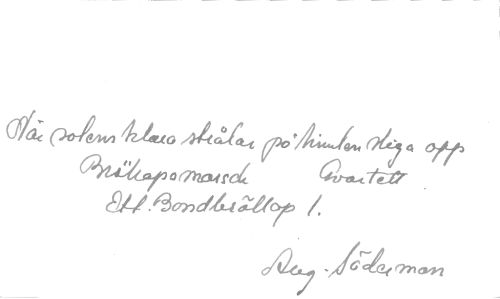 När solens klara strålar på himlen stiga opp
Bröllopsmarsch Qvartett
Ett Bondbröllop 1.
Aug. Söderman